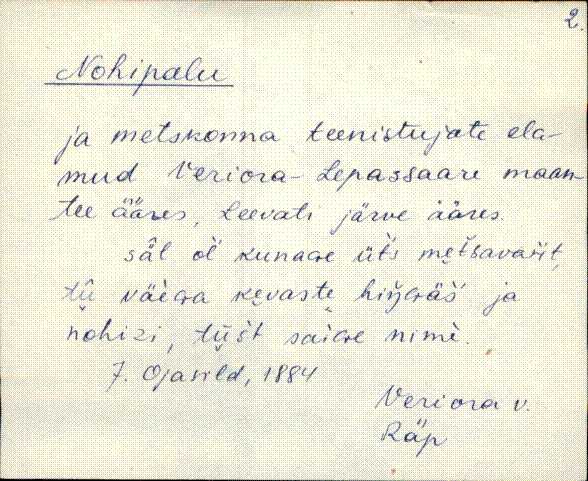 2.
Nohipalu
ja metskonna teenistujate ela-
mud Veriora-Lepassaare maan-
tee ääres, Leevati järve ääres.
säl oĺ kunaɢe üt́s met̆savaht́,
tū väèɢa kevaste hiŋɢäś ja
nohizi, tūst saiɢe nimè.
J. Ojavild, 1884
Veriora v.
Räp